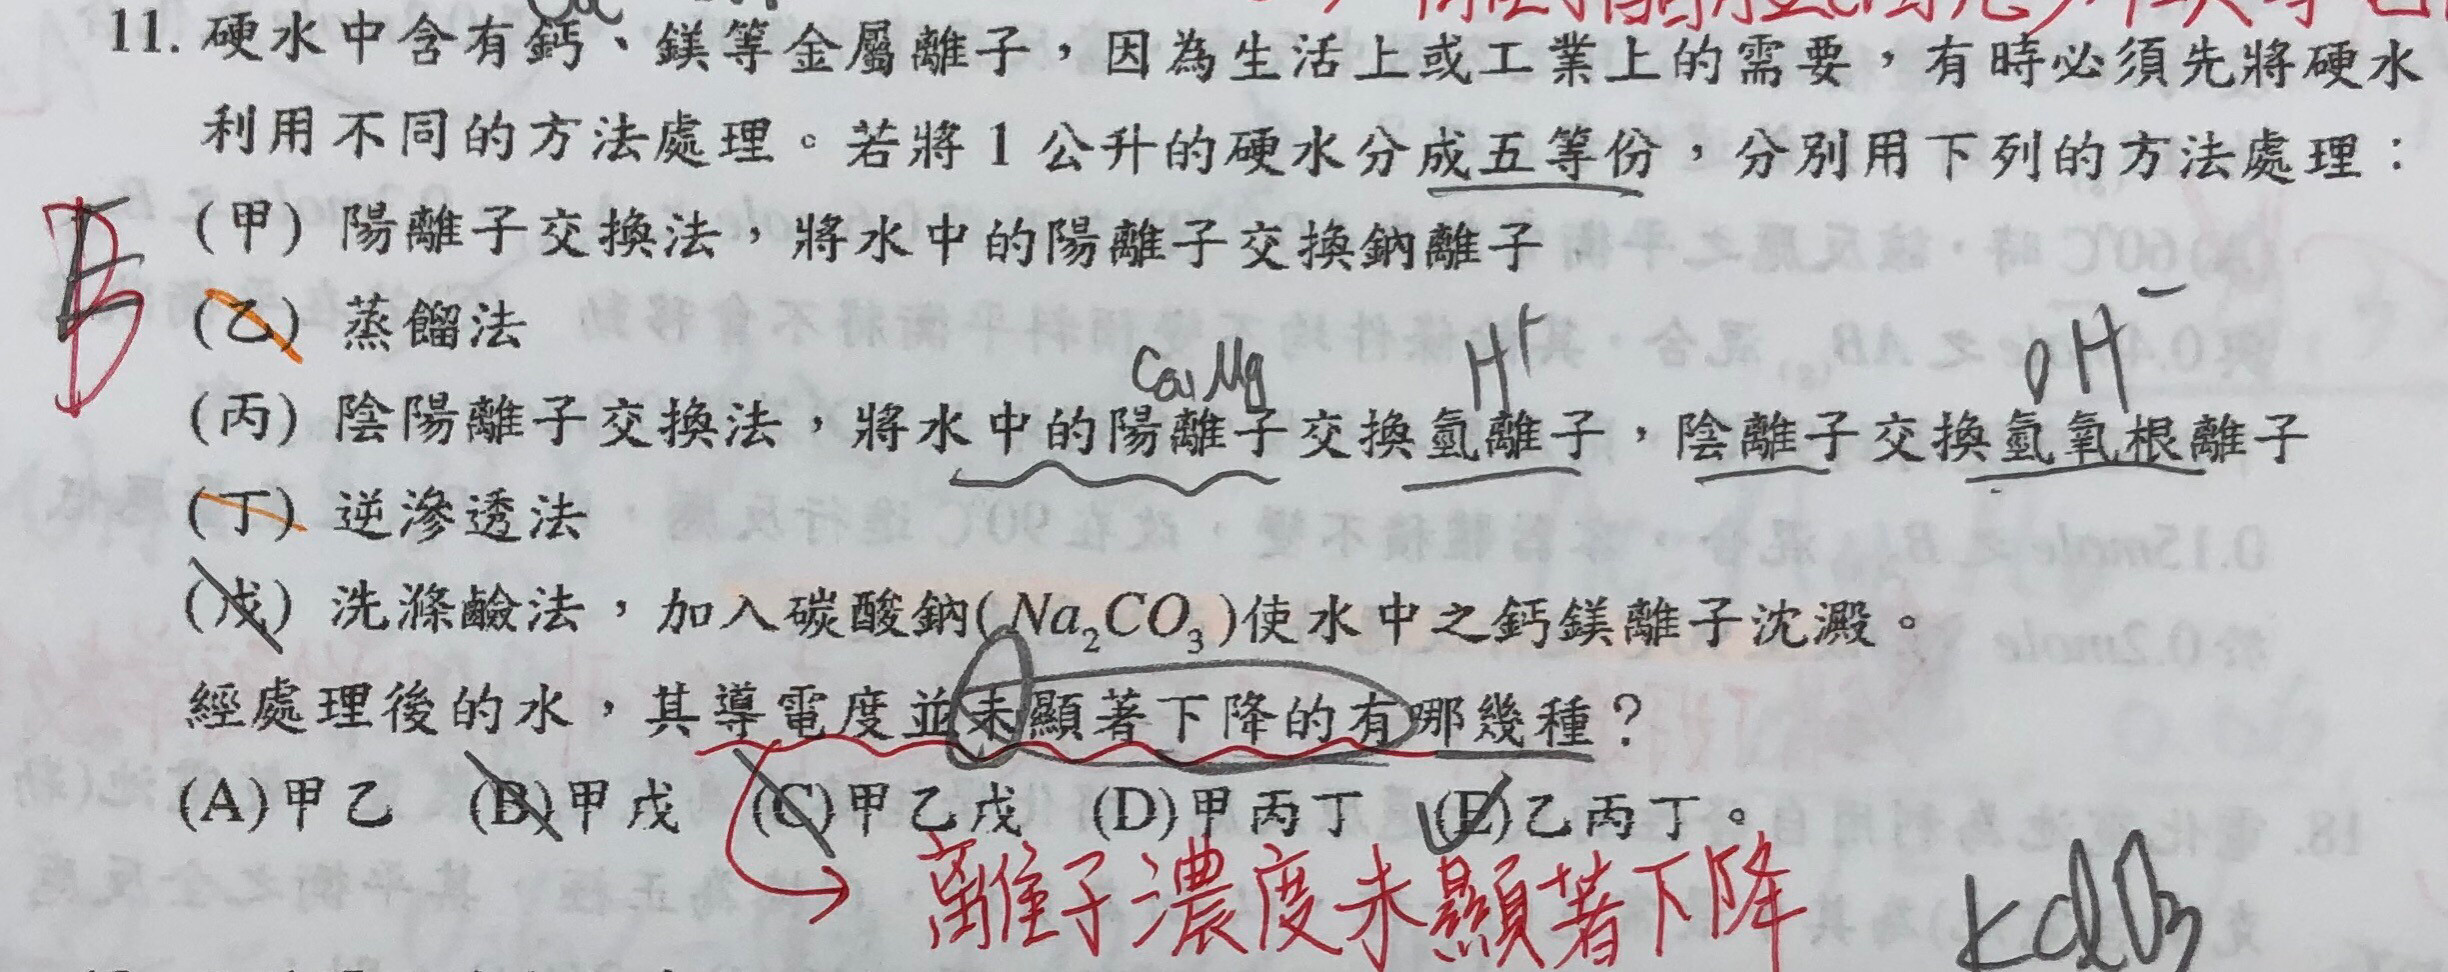 11. 硬水中含有鈣、鎂等金屬離子，因為生活上或工業上的需要，有時必須先將硬水
利用不同的方法處理。若將1公升的硬水分成五等份，分別用下列的方法處理：
(甲) 陽離子交換法，將水中的陽離子交換鈉離子
B
(乙) 蒸餾法
Ca Mg H+ OH-
(丙) 陰陽離子交換法，將水中的陽離子交換氫離子，陰離子交換氫氧根離子
(丁) 逆滲透法
(戊) 洗滌鹼法，加入碳酸鈉(Na₂CO₃)使水中之鈣鎂離子沈澱。
經處理後的水，其導電度並未顯著下降的有哪幾種？
(A)甲乙 (B)甲戊 (C)甲乙戊 (D)甲丙丁 (E)乙丙丁。
離子濃度未顯著下降
KClO3